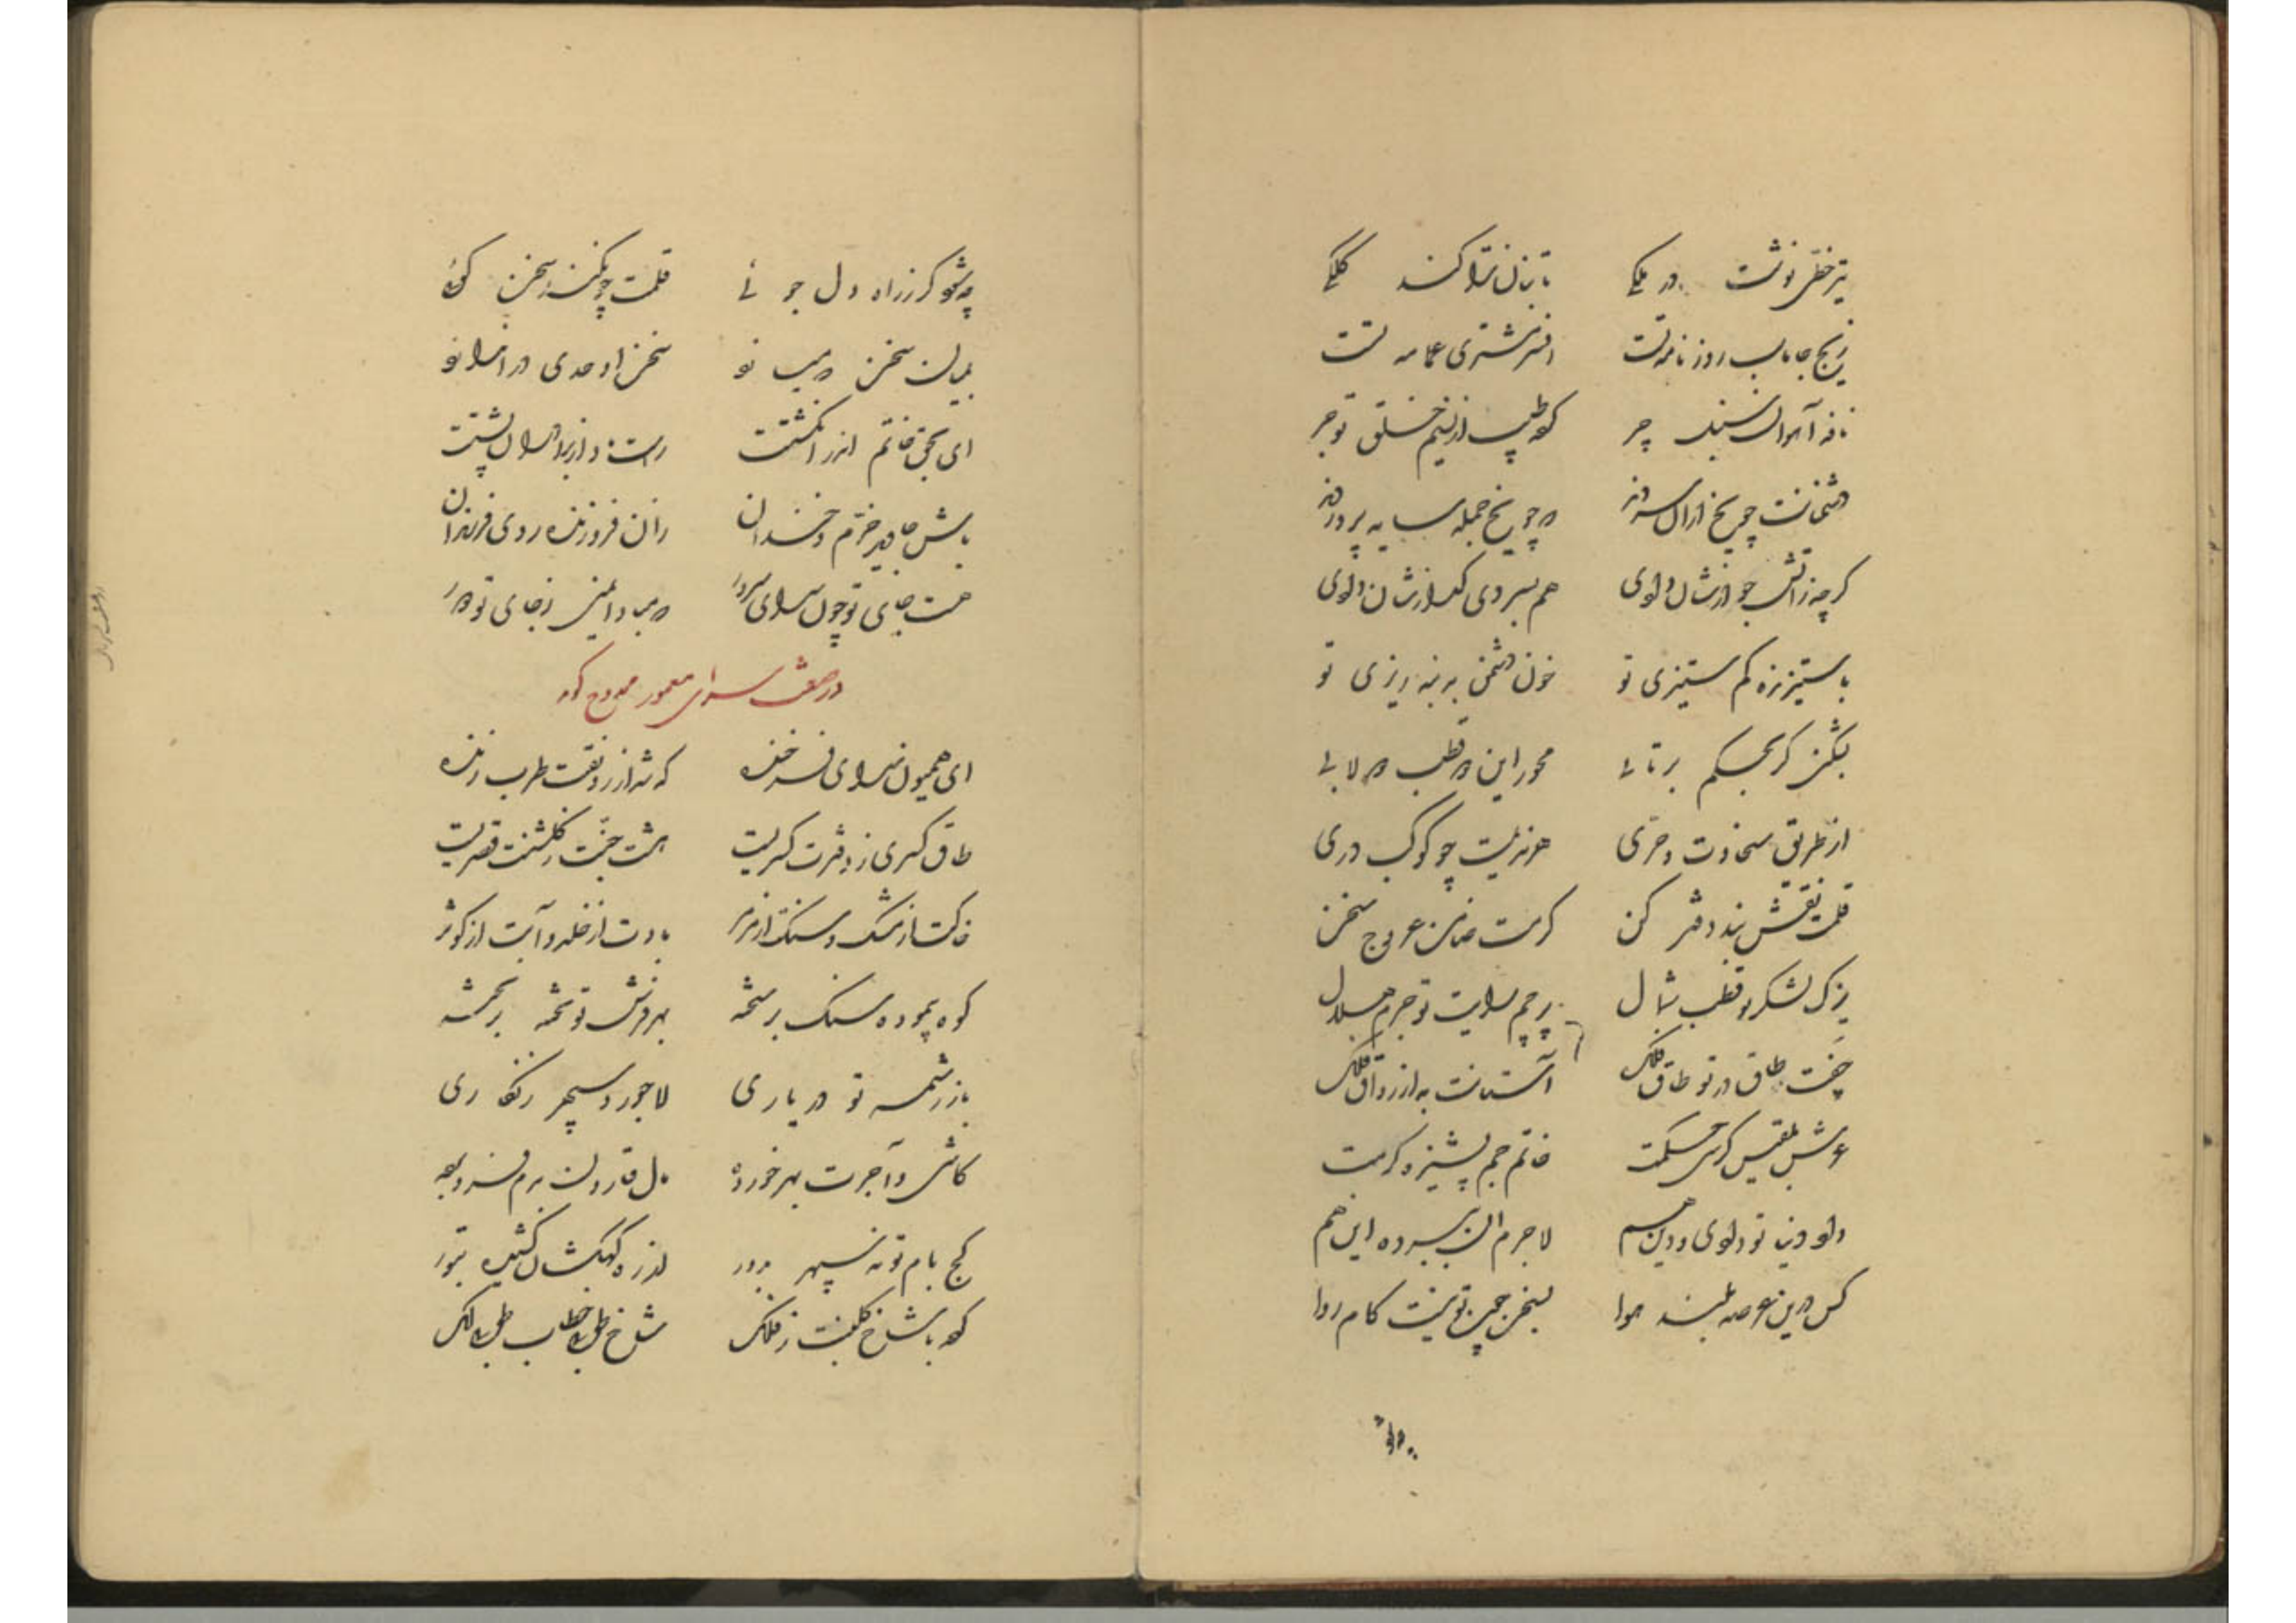 تیر خطی نوشت در یکی تا بنان ترا کند کلکی
زیج جاماسب روزنامه تست افسر مشتری عمامه تست
نافه آهوان سنبل چر که طیب از نسیم خلق تو جر
دشمنانت چو یخ از آن سردند که چو یخ جمله سایه پروردند
گرچه ز آتش جواز شان دادی هم بسردی گداز شان دادی
با ستیزنده کم ستیزی تو خون دشمن به پنبه ریزی تو
بشکند گر بحکم برتابی محور این قطب دولابی
از طریق سخاوت و حری هنر تست چو کوکب دری
قلمت نقش بند دفتر کن کرمت ضامن عروج سخن
یزک لشکر تو قطب شمال پرچم رایت تو جرم هلال
جفت طاق در تو طاق فلک آستانت به از رواق فلک
عرش بلقیس کرسی حکمت خاتم جم پشیزه کرمت
داد دنیا تو دادی و دین هم لاجرم آن ببرده این هم
کس درین عرصه بلند هوا بسخن چون تو نیست کام روا
چه شود گر ز راه دل جوئی قلمت چون کند سخن گوئی
بمیان سخن رسید تو سخن اوحدی در افسانه تو
ای بحق خاتم اندر انگشتت راست دار ازبرادران پشتت
باش جاوید خرم و خندان زان فروزنده روی فرزندان
هست جای تو چون سرای سرور مبادا غمی ز جای تو دور
در صفت سرای معمور ممدوح گوید
ای همیون سرای فرخنده که شد از رونقت طرب زنده
طاق کسری ز دفترت کسریست هشت جنت ز گلشنت قصریست
خاکت از مشک و سنگت از مرمر بادت از خلد و آبت از کوثر
کوه پیموده سنگ بر سخته بهر فرشت تو تخته بر تخته
بازر شمسه تو در یاری لاجورد سپهر زنگاری
کاشی و آجرت بهر خورده مال قارون بدم فرو برده
کچ بام تو نه سپهر بزور از ره کهکشان کشیده بتور
که با شاخ گلبنت ز فلک شاخ طوبی خطاب طوبی لک